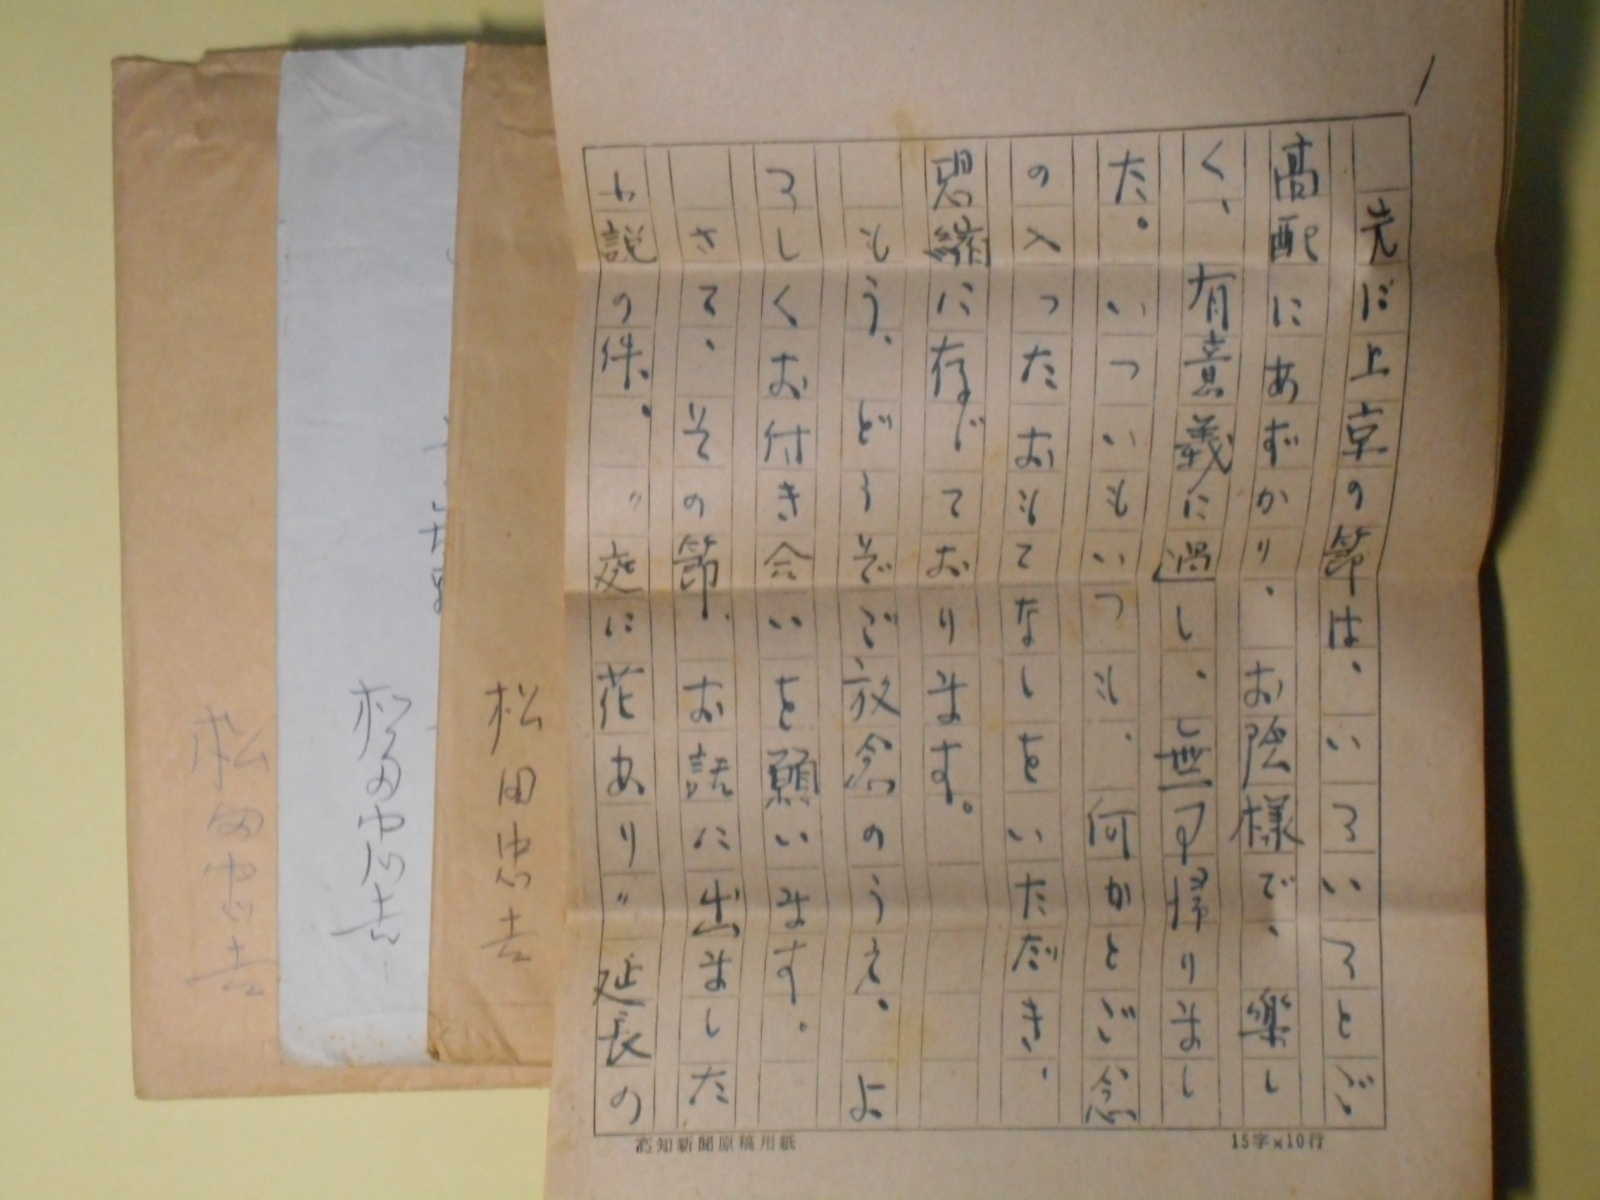 1
先に上京の節は、いろいろとご
高配にあずかり、お陰様で、楽し
く、有意義に過し、無事帰りまし
た。いついつもいつも、何かとご念
の入ったおもてなしをいただき、
恐縮に存じております。
もう、どうぞご放念のうえ、よ
ろしくお付き合いを願います。
さて、その節、お話に出ました
小説の件、〃庭に花あり〃延長の
高知新聞原稿用紙
15字×10行
松田忠吉
松田忠吉
松田忠吉